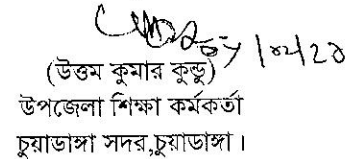 (উত্তম কুমার কুন্ডু)
উপজেলা শিক্ষা কর্মকর্তা
চুয়াডাঙ্গা সদর,চুয়াডাঙ্গা।